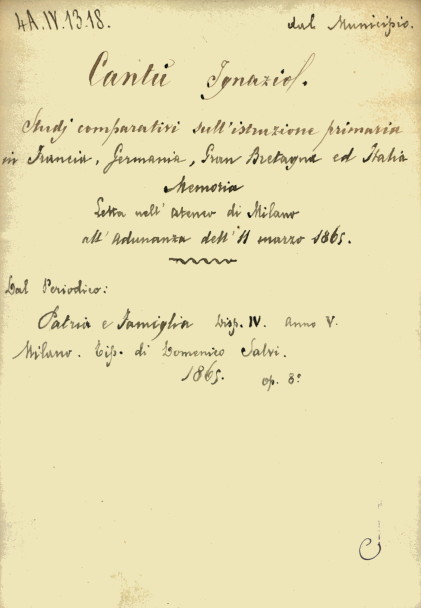 4A.IV.13.18.
dal Municipio.
Cantù Ignazio.
Studj comparativi sull'istruzione primaria
in Francia, Germania, Gran Bretagna ed Italia
Memoria
Letta nell'Ateneo di Milano
all'Adunanza dell'11 marzo 1865.
Dal Periodico:
Patria e Famiglia Disp. IV. Anno V.
Milano. Tip. di Domenico Salvi.
1865. op. 8°